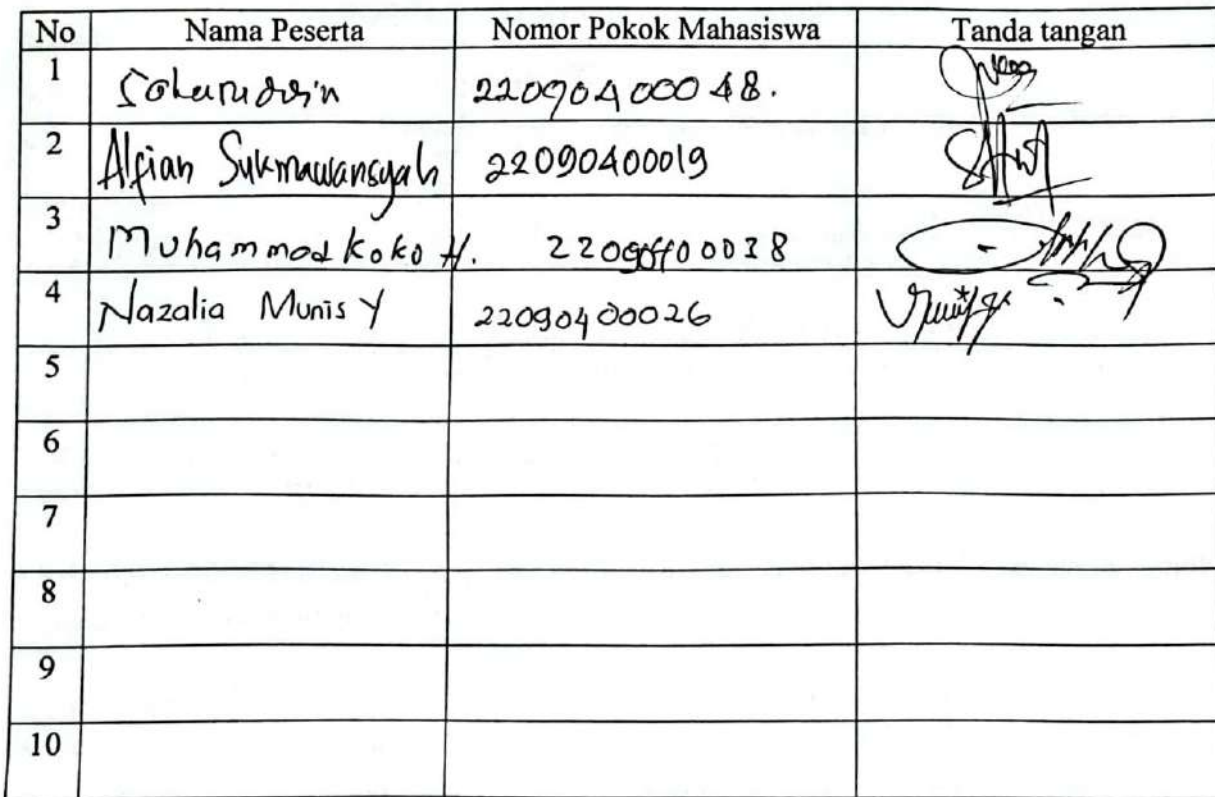 No Nama Peserta Nomor Pokok Mahasiswa Tanda tangan
1 Saharuddin 22090400048.
2 Alfian Sukmawansyah 22090400019
3 Muhammad Koko H. 22090400038
4 Nazalia Munis Y 22090400026
5
6
7
8
9
10